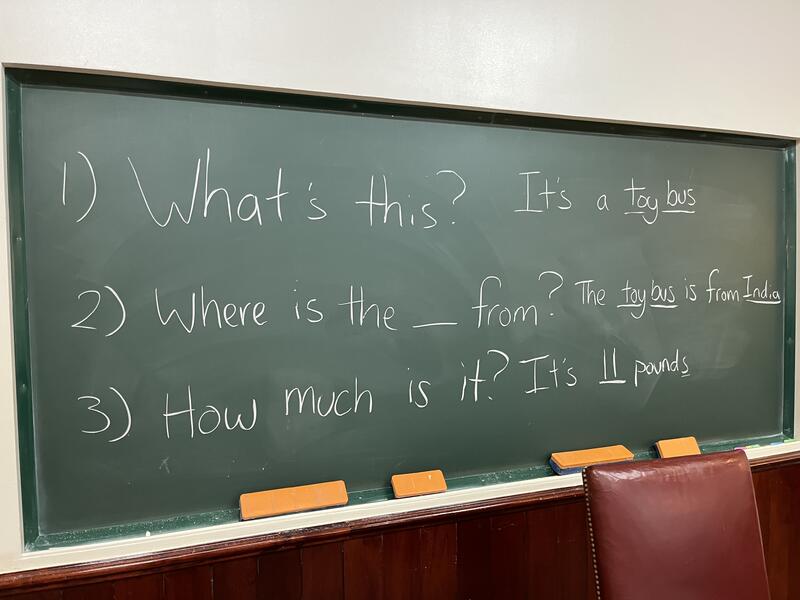 1) What's this? It's a toy bus
2) Where is the __ from? The toy bus is from India
3) How much is it? It's 11 pounds